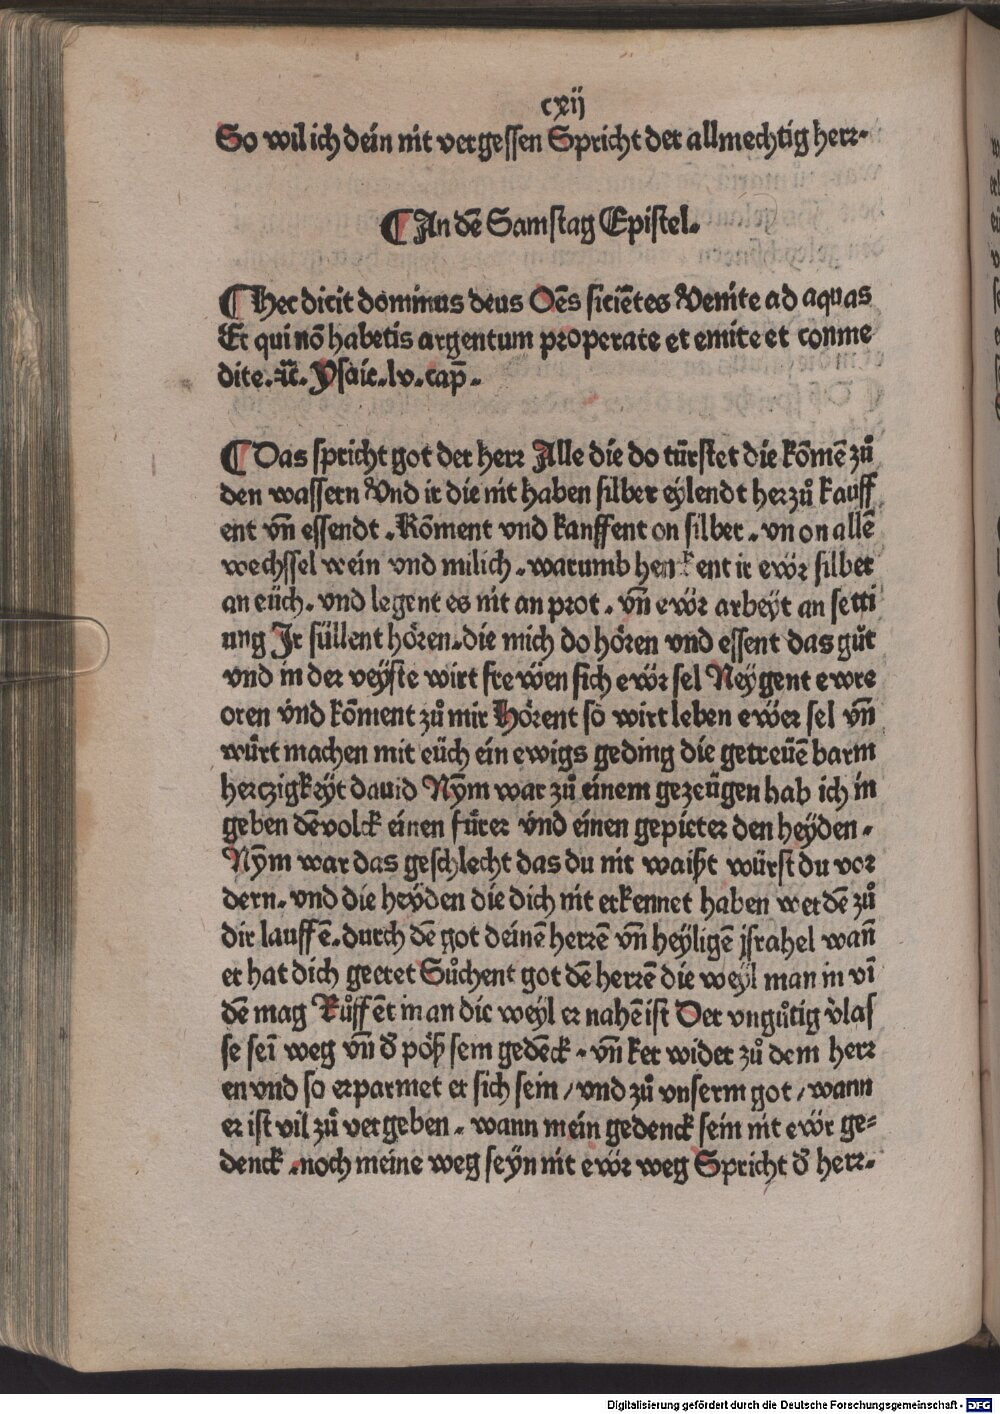 cxij
So wil ich dein nit vergessen Spricht der allmechtig herr.
¶ An dē Samstag Epistel.
¶ Hec dicit dominus deus Oēs siciētes Venite ad aquas
Et qui nō habetis argentum properate et emite et conme
dite. ⁊c̄. Ysaie. lv. cap̄.
¶ Das spricht got der herr Alle die do türstet die kōmē zů
den wassern Vnd ir die nit haben silber eylendt herzů kauff
ent vn̄ essendt. Kōment vnd kanffent on silber. vn on allē
wechssel wein vnd milich. warumb henckent ir ewr silber
an eüch. vnd legent es nit an prot. vn̄ ewr arbeyt an setti
ung Ir süllent hören. die mich do hören vnd essent das gůt
vnd in der veyste wirt frewen sich ewr sel Neygent ewre
oren vnd kōment zů mir Hörent so wirt leben ewer sel vn̄
würt machen mit eüch ein ewigs geding die getreuē barm
herczigkeyt dauid Nȳm war zů einem gezeügen hab ich in
geben dē volck einen fürer vnd einen gepieter den heyden.
Nȳm war das geschlecht das du nit waißt würst du vor
dern. vnd die heyden die dich nit erkennet haben werdē zů
dir lauffē. durch dē got deinē herrē vn̄ heyligē jsrahel wan̄
er hat dich geeret Sůchent got dē herrē die weyl man in vī
dē mag Růffēt in an die weyl er nahē ist Der vngůtig v̓las
se seī weg vn̄ d̓ pöß sem gedēck. vn̄ ker wider zů dem herr
en vnd so erparmet er sich sein / vnd zů vnserm got / wann
er ist vil zů vergeben. wann mein gedenck sein nit ewr ge⸗
denck. noch meine weg seyn nit ewr weg Spricht d̓ herr.
Digitalisierung gefördert durch die Deutsche Forschungsgemeinschaft - DFG